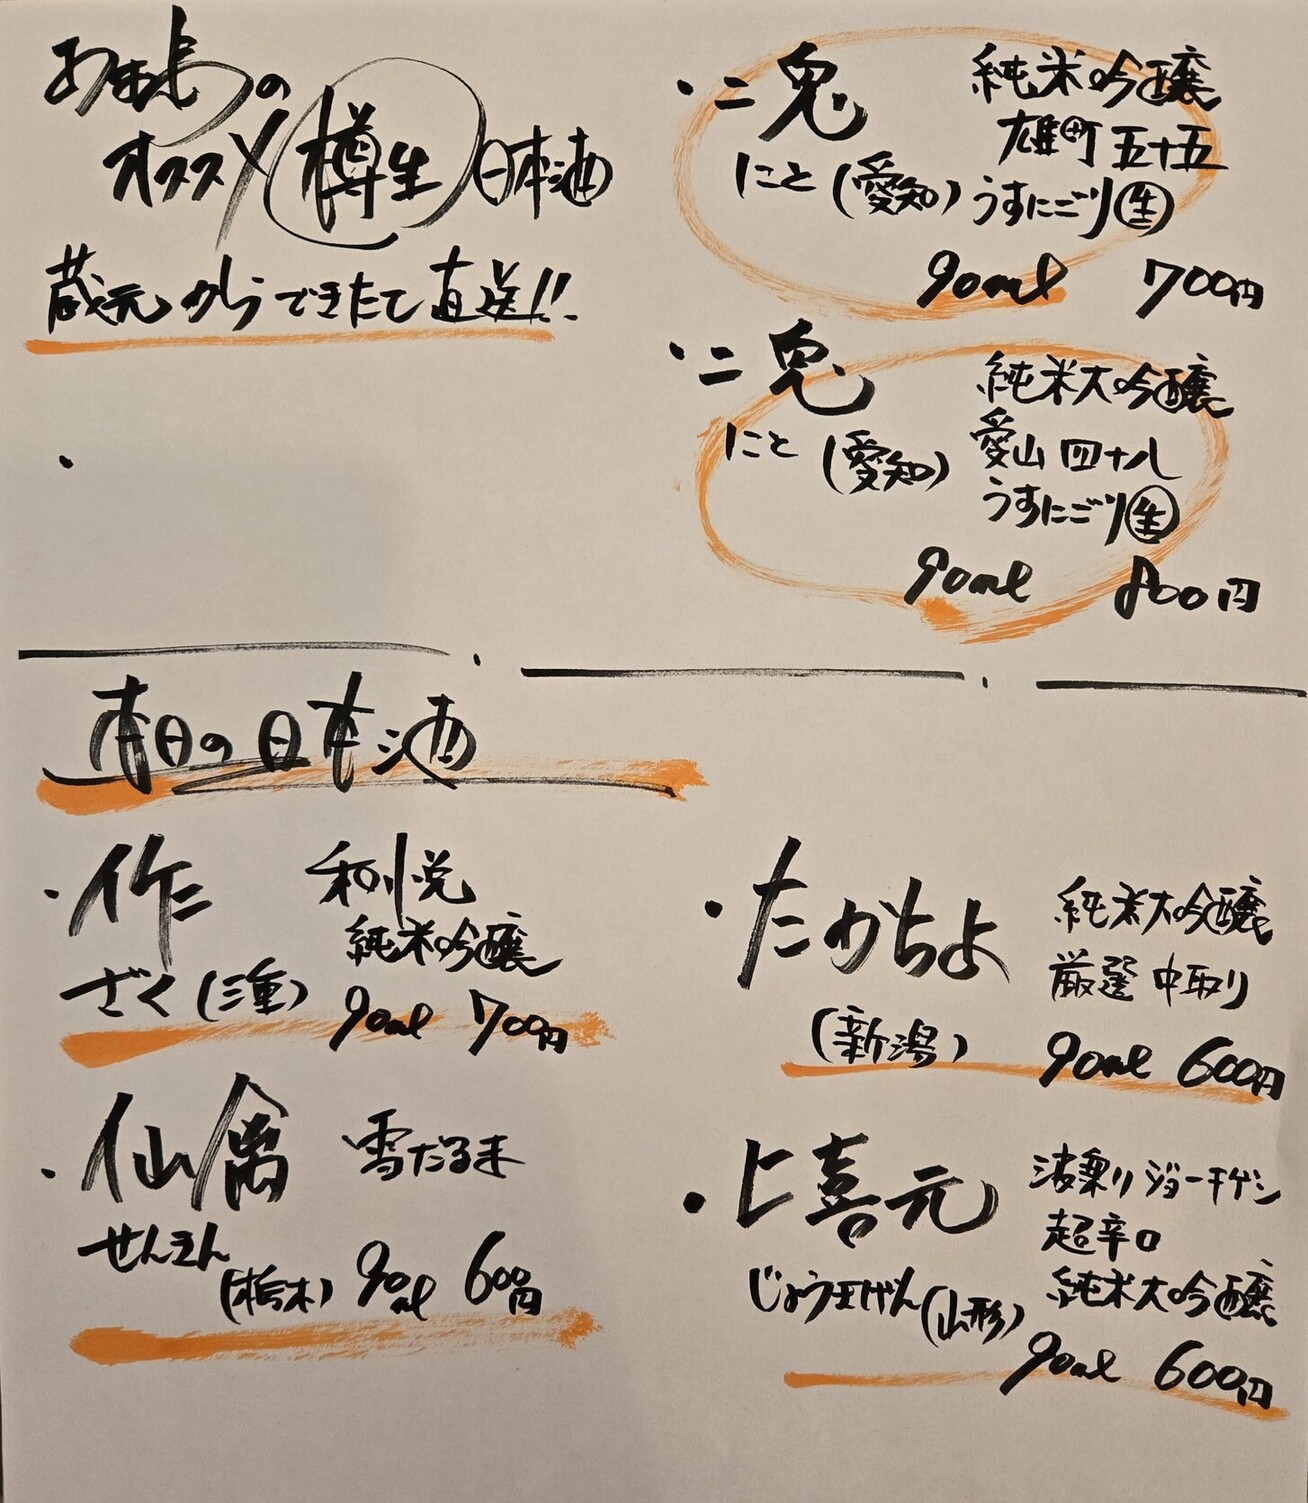 の
オススメ 樽生 日本酒
蔵元からできたて直送!!
・二兎 純米吟醸
雄町 五十五
にと (愛知) うすにごり 生
90ml 700円
・二兎 純米大吟醸
にと (愛知) 愛山 四十八
うすにごり 生
90ml 800円
本日の日本酒
・作 和悦
純米吟醸
ざく (三重) 90ml 700円
・仙禽 雪だるま
せんきん
(栃木) 90ml 600円
・たかちよ 純米大吟醸
厳選 中取り
(新潟) 90ml 600円
・上喜元 波乗りジョーキゲン
超辛口
じょうきげん (山形) 純米大吟醸
90ml 600円